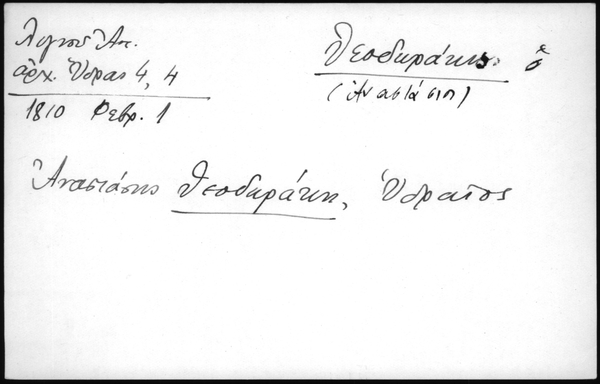 Λιγνοῦ Ἀπ.
ἀρχ. Ὕδρας 4, 4
1810 Φεβρ. 1
Θεοδωράκης ὁ
(Ἀναστάσιος)
Ἀναστάσης Θεοδωράκη, Ὑδραῖος